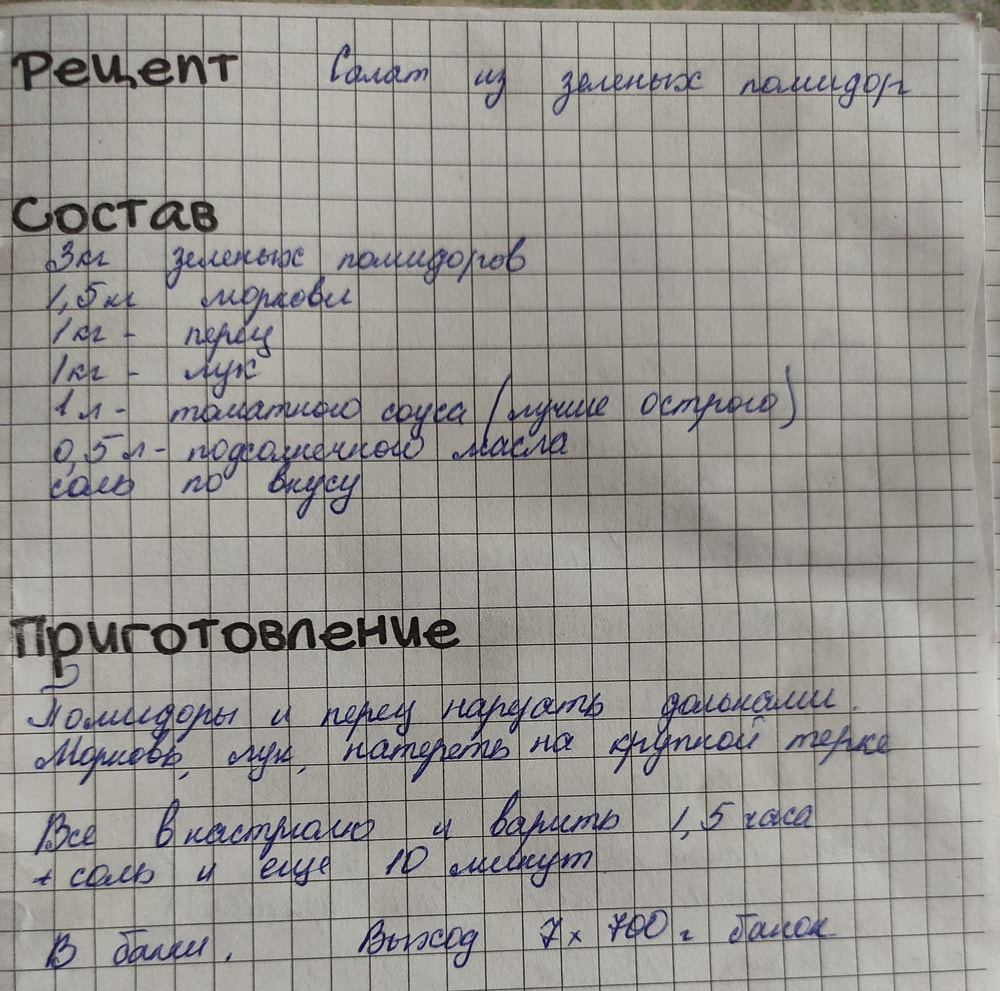 Рецепт Салат из зеленых помидор
Состав
3кг зеленых помидоров
1,5кг моркови
1кг - перец
1кг - лук
1л - томатного соуса (лучше острого)
0,5л - подсолнечного масла
соль по вкусу
Приготовление
Помидоры и перец нарезать дольками.
Морковь, лук, натереть на крупной терке
Все в кастрюлю и варить 1,5 часа
+ соль и еще 10 минут
В банки. Выход 7х 700 г банок